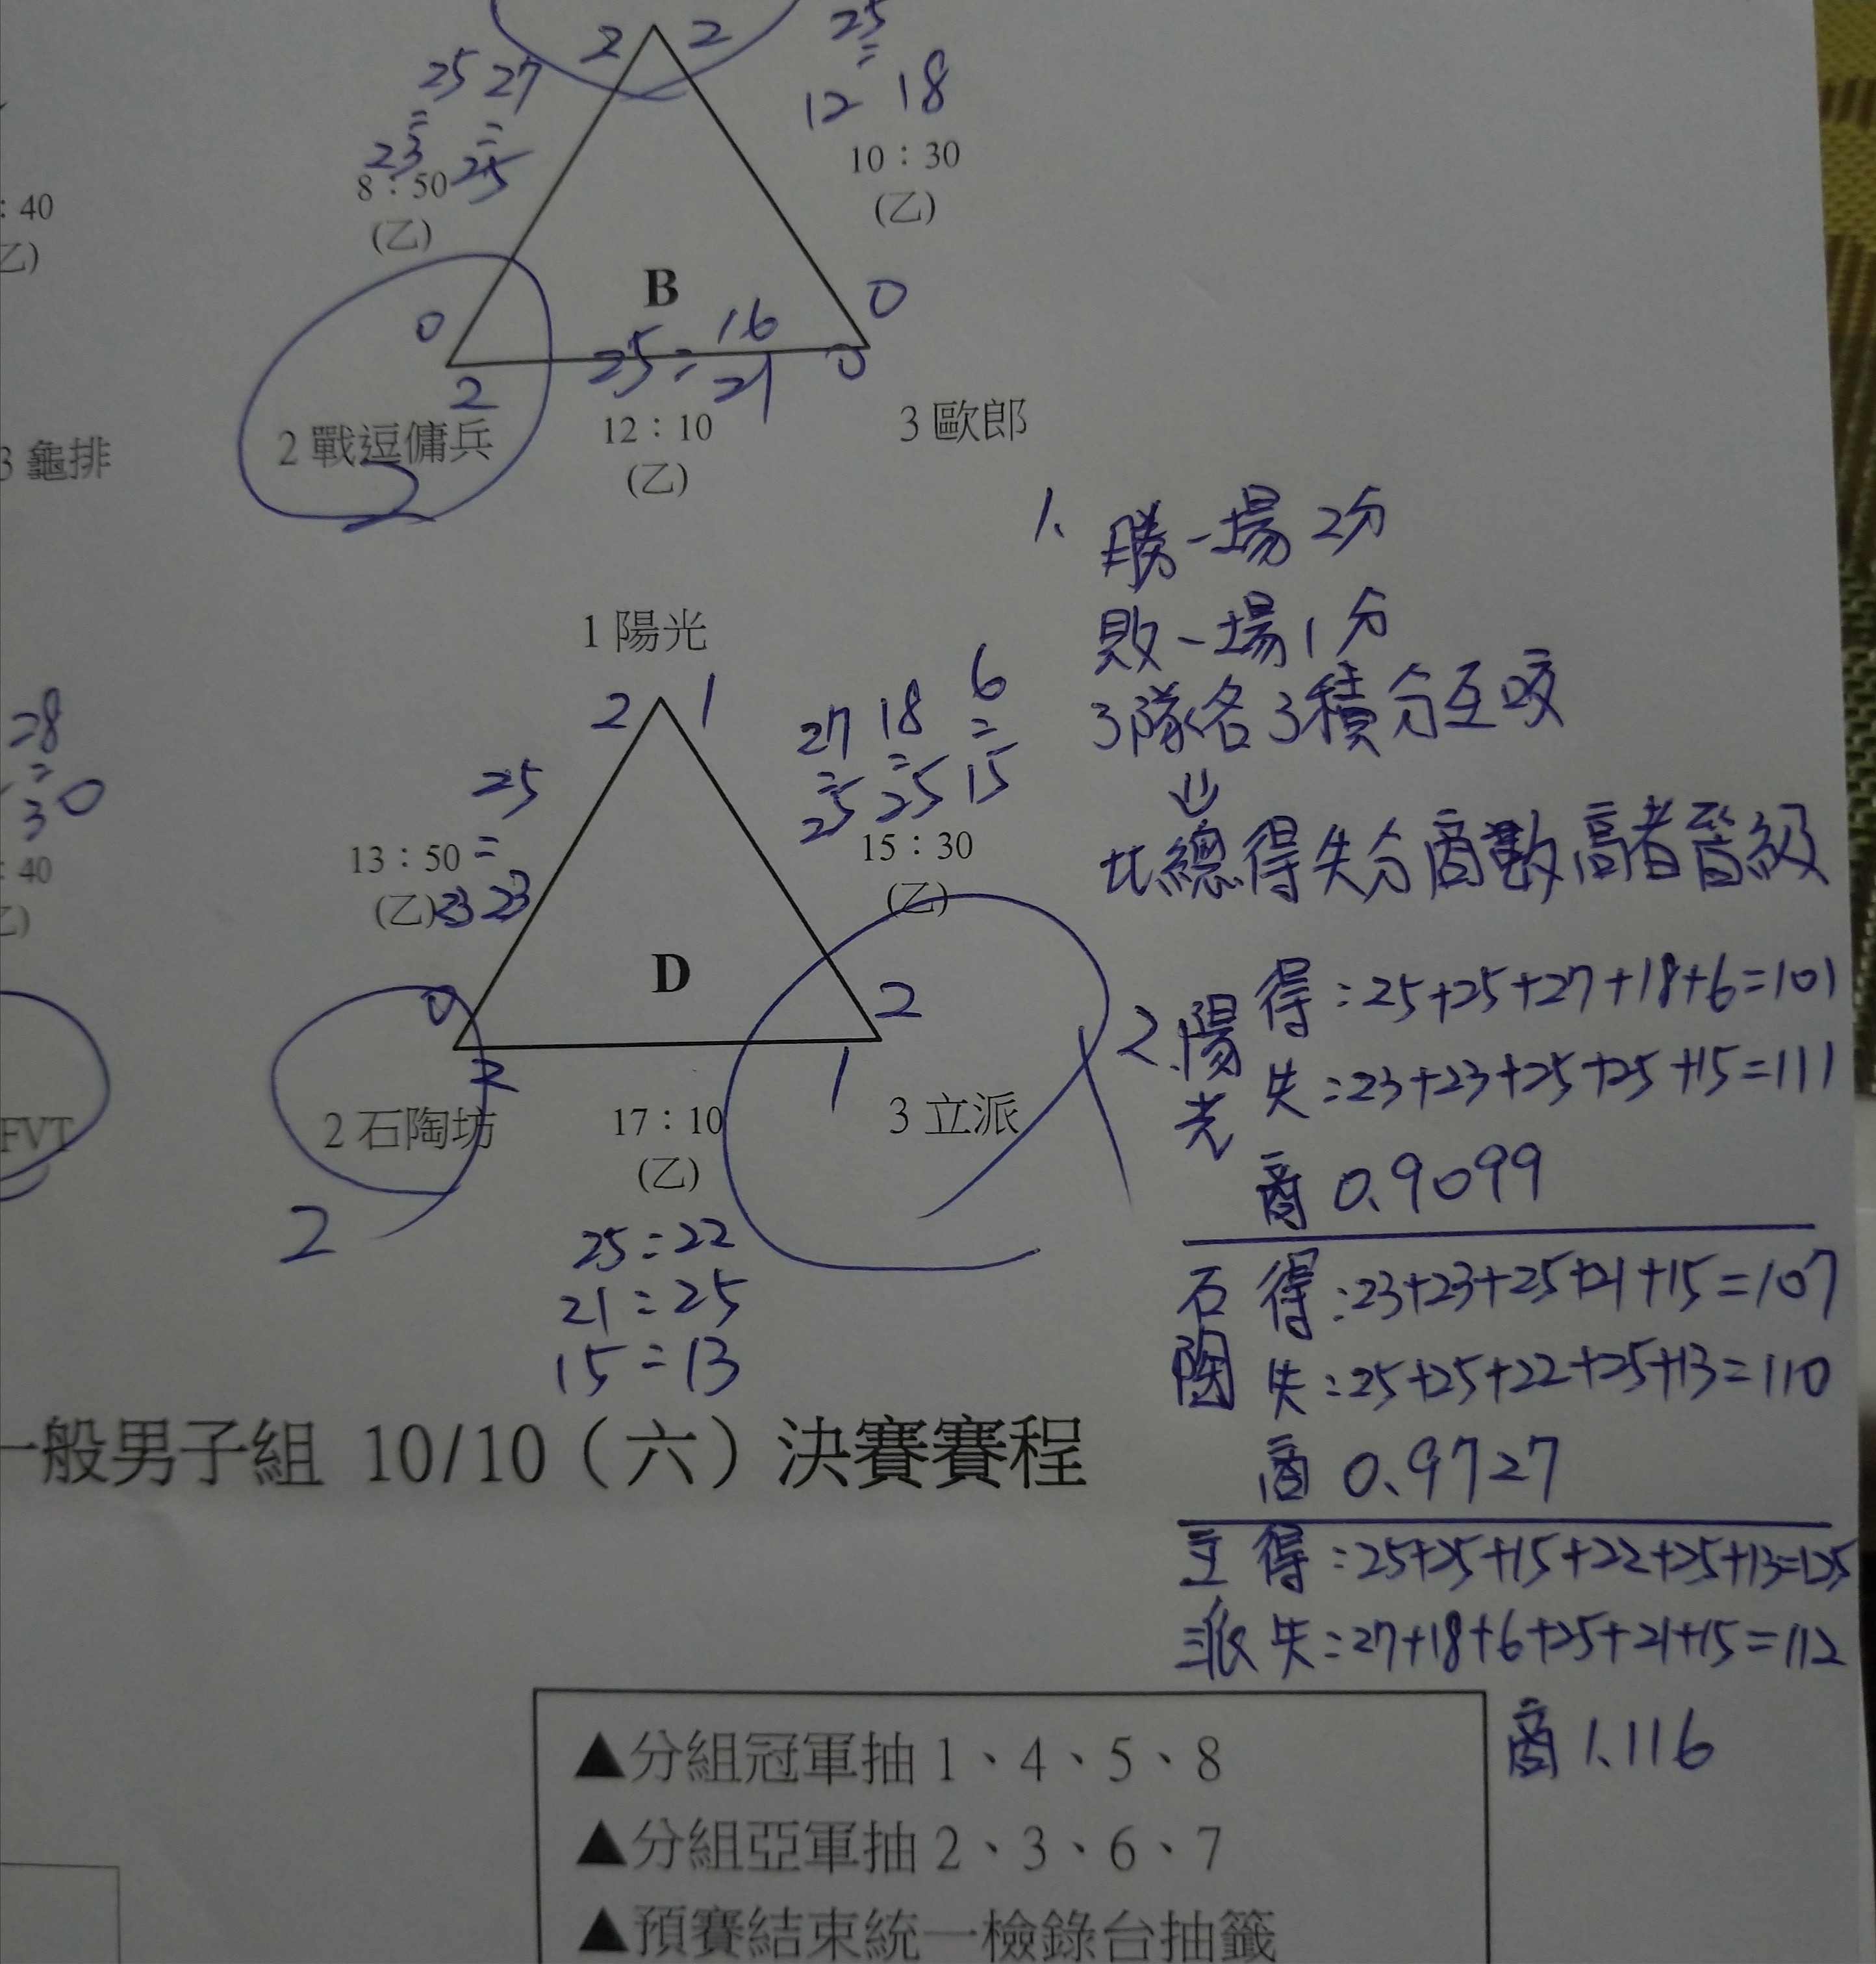 2 2
25 27
= =
23 25
8：50
(乙)
25
=
12 18
10：30
(乙)
：40
乙)
B
0
2
0
0
25 = 16
21
12：10
(乙)
2 戰逗傭兵
2
3 歐郎
3 龜排
1、勝一場2分
敗一場1分
3隊各3積分互咬
⇓
比總得失分商數高者晉級
1 陽光
2 1
25
=
23 23
13：50
(乙)
27 18 6
= = =
25 25 15
15：30
(乙)
28
=
30
：40
乙)
D
0
2
2
1
FVT
2 石陶坊
2
17：10
(乙)
3 立派
1
25=22
21=25
15=13
2、陽光
得：25+25+27+18+6=101
失：23+23+25+25+15=111
商 0.9099
石陶
得：23+23+25+21+15=107
失：25+25+22+25+13=110
商 0.9727
立派
得：25+25+15+22+25+13=125
失：27+18+6+25+21+15=112
商 1.116
一般男子組 10/10（六）決賽賽程
▲分組冠軍抽 1、4、5、8
▲分組亞軍抽 2、3、6、7
▲預賽結束統一檢錄台抽籤